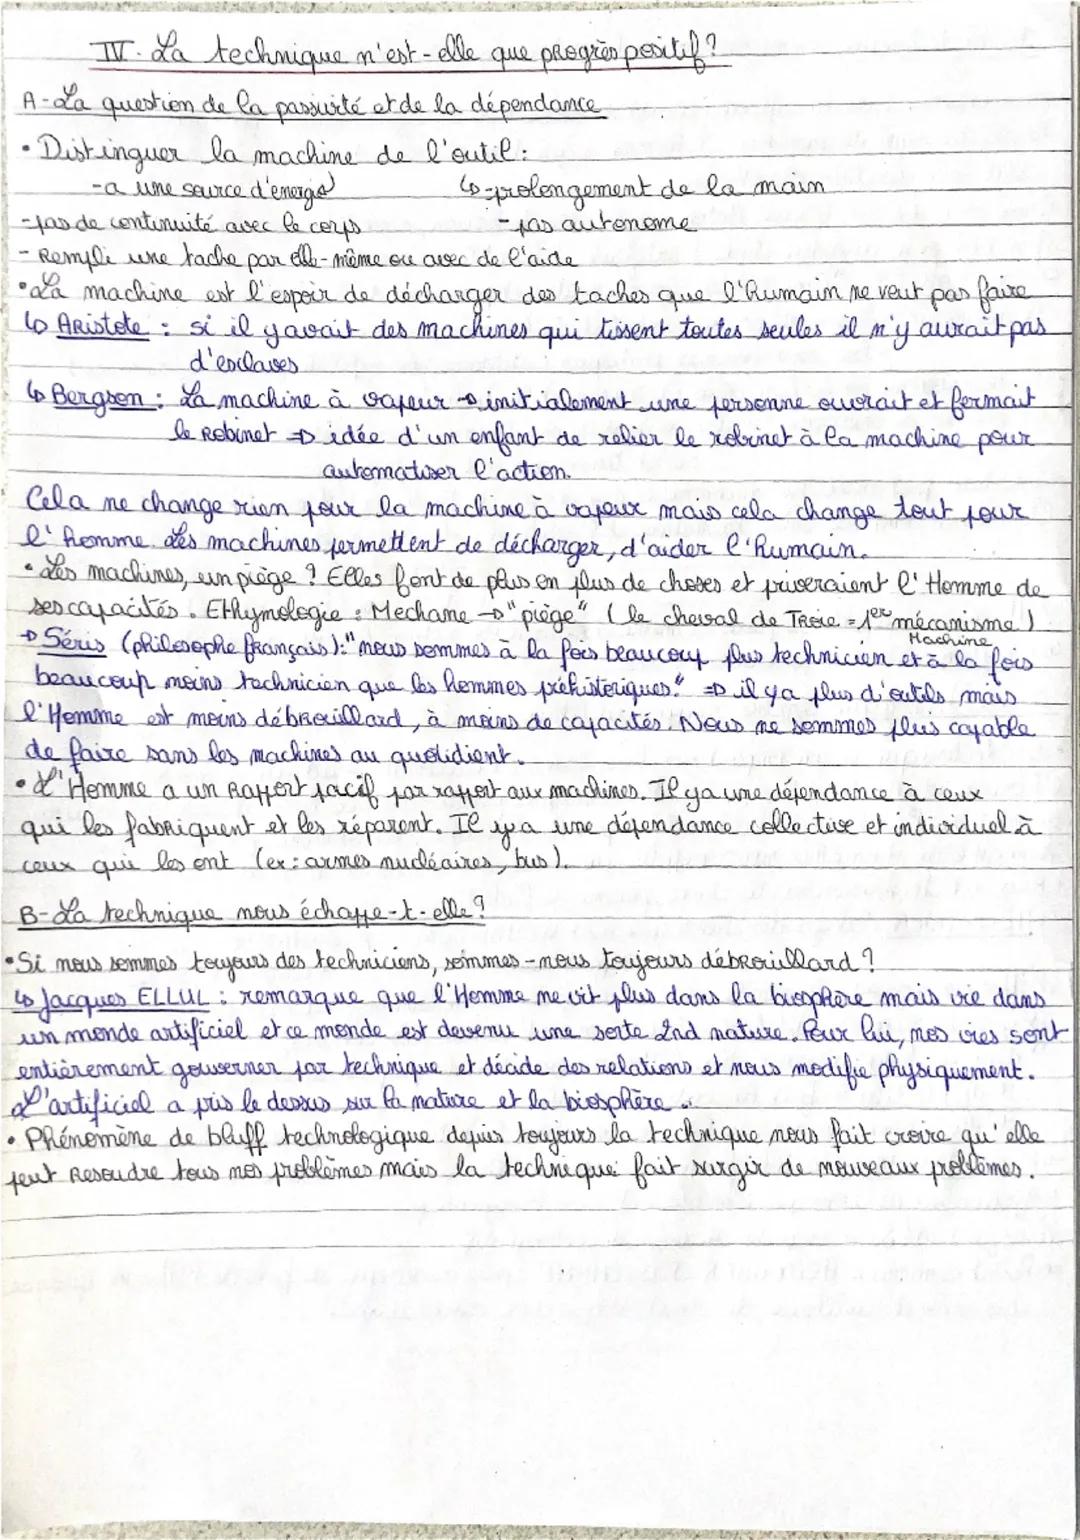 IV. La technique n'est-elle que progrès positif ?
A - La question de la passivité et de la dépendance
• Distinguer la machine de l'outil :
- a une source d'énergie ↳ - prolongement de la main
- pas de continuité avec le corps - pas autonome
- Rempli une tache par elle-même ou avec de l'aide
• La machine est l'espoir de décharger des taches que l'humain ne veut pas faire
↳ Aristote : si il y avait des machines qui tissent toutes seules il n'y aurait pas
d'esclaves
↳ Bergson : La machine à vapeur → initialement une personne ouvrait et fermait
le Robinet ⇒ idée d'un enfant de relier le robinet à la machine pour
automatiser l'action.
Cela ne change rien pour la machine à vapeur mais cela change tout pour
l'homme. Les machines permettent de décharger, d'aider l'humain.
• Les machines, un piège ? Elles font de plus en plus de choses et priveraient l'Homme de
ses capacités. Ethymologie : Mechane → "piège" (le cheval de Troie = 1er mécanisme)
Machine
→ Séris (philosophe français) : "nous sommes à la fois beaucoup plus technicien et à la fois
beaucoup moins technicien que les hommes préhistoriques." ⇒ il y a plus d'outils mais
l'Homme est moins débrouillard, à moins de capacités. Nous ne sommes plus capable
de faire sans les machines au quotidient.
• L'Homme a un Rapport pacif par rapport aux machines. Il y a une dépendance à ceux
qui les fabriquent et les réparent. Il y a une dépendance collective et individuel à
ceux qui les ont (ex : armes nucléaires, bus).
B - La technique nous échappe-t-elle ?
• Si nous sommes toujours des techniciens, sommes-nous toujours débrouillard ?
↳ Jacques ELLUL : remarque que l'Homme ne vit plus dans la biosphère mais vie dans
un monde artificiel et ce monde est devenu une sorte 2nd nature. Pour lui, nos vies sont
entièrement gouverner par technique et décide des relations et nous modifie physiquement.
L'artificiel a pris le dessus sur la nature et la biosphère.
• Phénomène de bluff technologique depuis toujours la technique nous fait croire qu'elle
peut Resoudre tous nos problèmes mais la technique fait surgir de nouveaux problèmes.